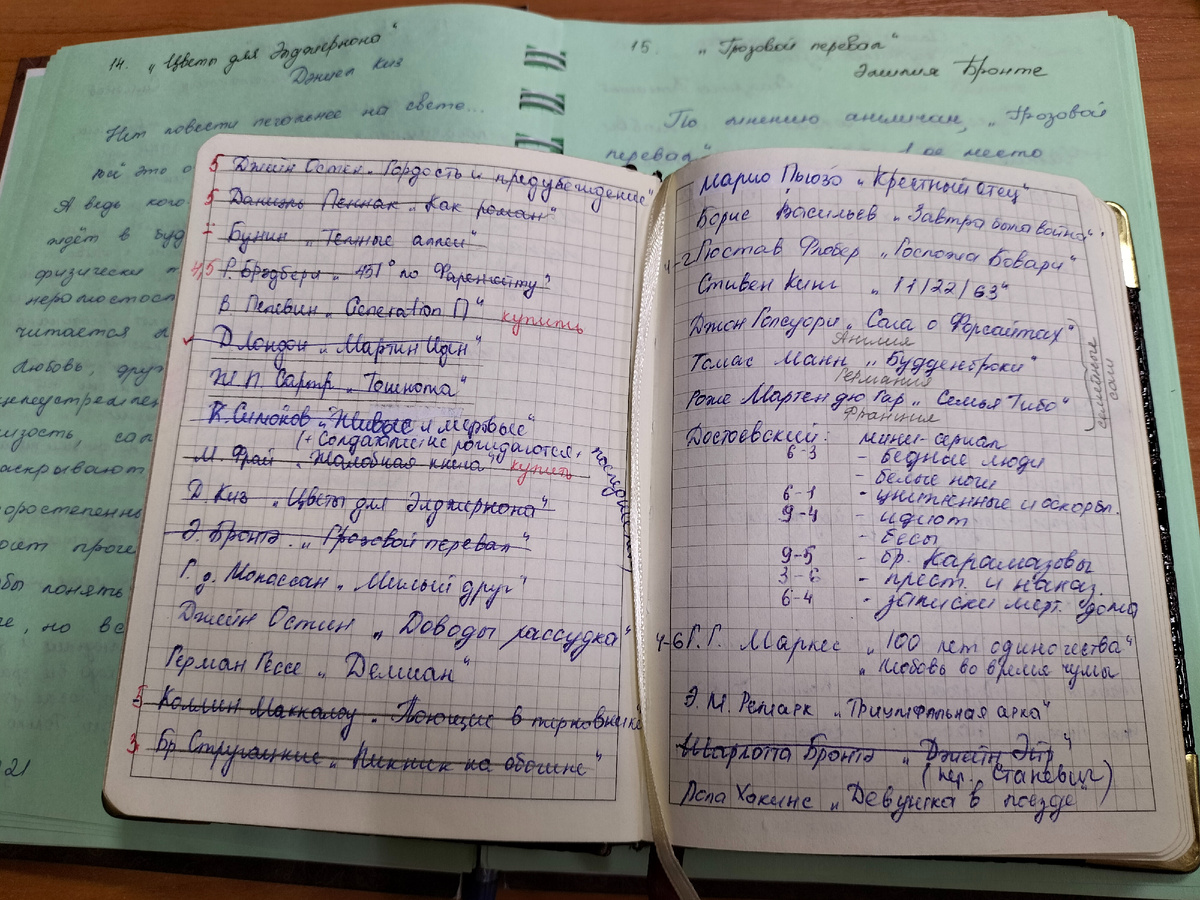 14. „Цветы для Элджернона“
Дэниел Киз
Нет повести печальнее на свете...
А ведь кого
ждёт в буд
физически
читается
Любовь, друг
раскрывают
бы понять
15. „Грозовой перевал“
Эмилия Бронте
По мнению англичан, „Грозовой
перевал“ место
5 Джейн Остен „Гордость и предубеждение“
5 Даниэль Пеннак „Как роман“
Бунин „Темные аллеи“
4,5 Р. Брэдбери „451° по Фаренгейту“
В. Пелевин „Generation П“ купить
Д. Лондон „Мартин Иден“
Ж.П. Сартр „Тошнота“
К. Симонов „Живые и мертвые“
(+ Солдатами не рождаются, последнее лето)
М. Фрай „Жалобная книга“ купить
Д. Киз „Цветы для Элджернона“
Э. Бронтэ „Грозовой перевал“
Г. д. Мопассан „Милый друг“
Джейн Остин „Доводы рассудка“
Герман Гессе „Демиан“
5 Коллин Маккалоу „Поющие в терновнике
3 Бр. Стругацкие „Пикник на обочине“
Марио Пьюзо „Крестный отец“
Борис Васильев „Завтра была война“
4-2 Гюстав Флобер „Госпожа Бовари“
Стивен Кинг „11/22/63“
Джон Голсуори „Сага о Форсайтах“
Англия
Томас Манн „Будденброки“
Германия
Роже Мартен дю Гар „Семья Тибо“
Франция
семейные саги
Достоевский: мини-сериал
6-3 - бедные люди
- белые ночи
6-1 - униженные и оскорбл.
9-4 - идиот
- бесы
9-5 - бр. Карамазовы
3-6 - прест. и наказ.
6-4 - записки мерт. дома
4-6 Г.Г. Маркес „100 лет одиночества“
„Любовь во время чумы
Э. М. Ремарк „Триумфальная арка“
Шарлотта Бронтэ „Джейн Эйр“
(пер. Станевич)
Пола Хокинс „Девушка в поезде“
21